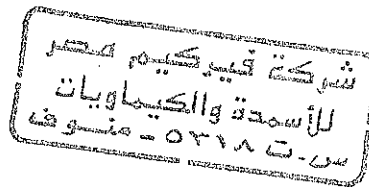 شركة فيركيم مصر
للأسمدة والكيماويات
س.ت ٥٣١٨ - منوف